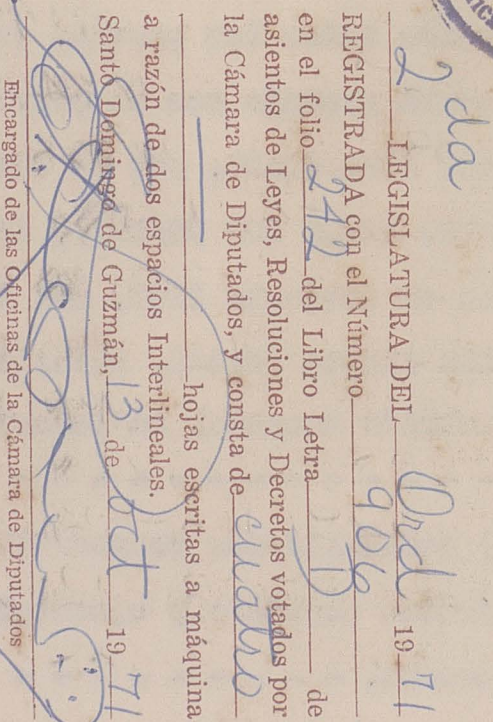 2 da LEGISLATURA DEL Ord 1971
REGISTRADA con el Número 906
en el folio 242 del Libro Letra D de
asientos de Leyes, Resoluciones y Decretos votados por
la Cámara de Diputados, y consta de cuatro
hojas escritas a máquina
a razón de dos espacios Interlineales.
Santo Domingo de Guzmán, 13 de Oct 1971
Encargado de las Oficinas de la Cámara de Diputados